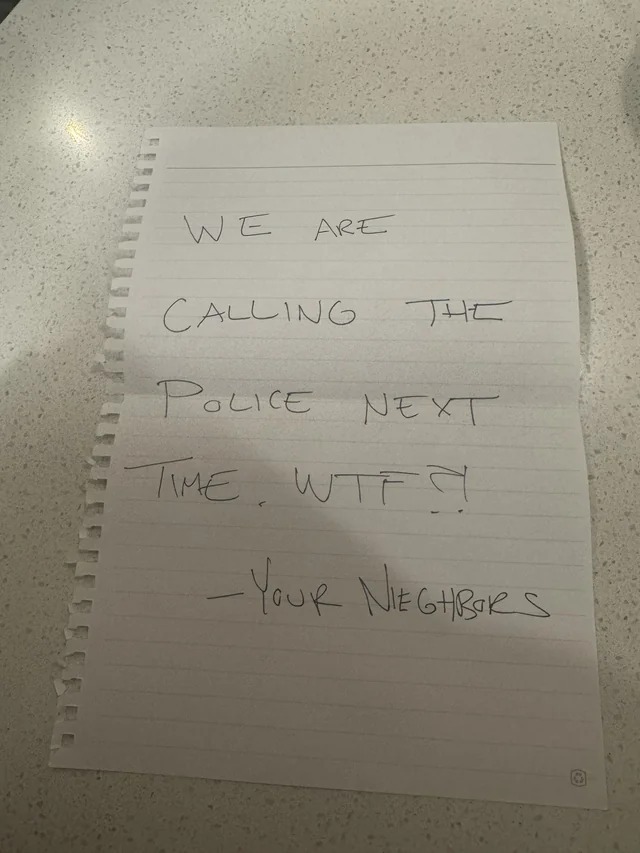 WE ARE
CALLING THE
POLICE NEXT
TIME. WTF?!
—YOUR NIEGHBORS